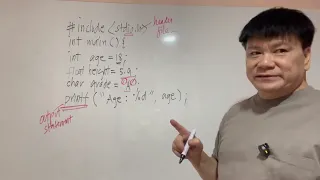 #include <stdio.h> header file
int main() {
int age = 18;
float height = 5.9;
char grade =
printf ("Age: %d", age);
output
statement